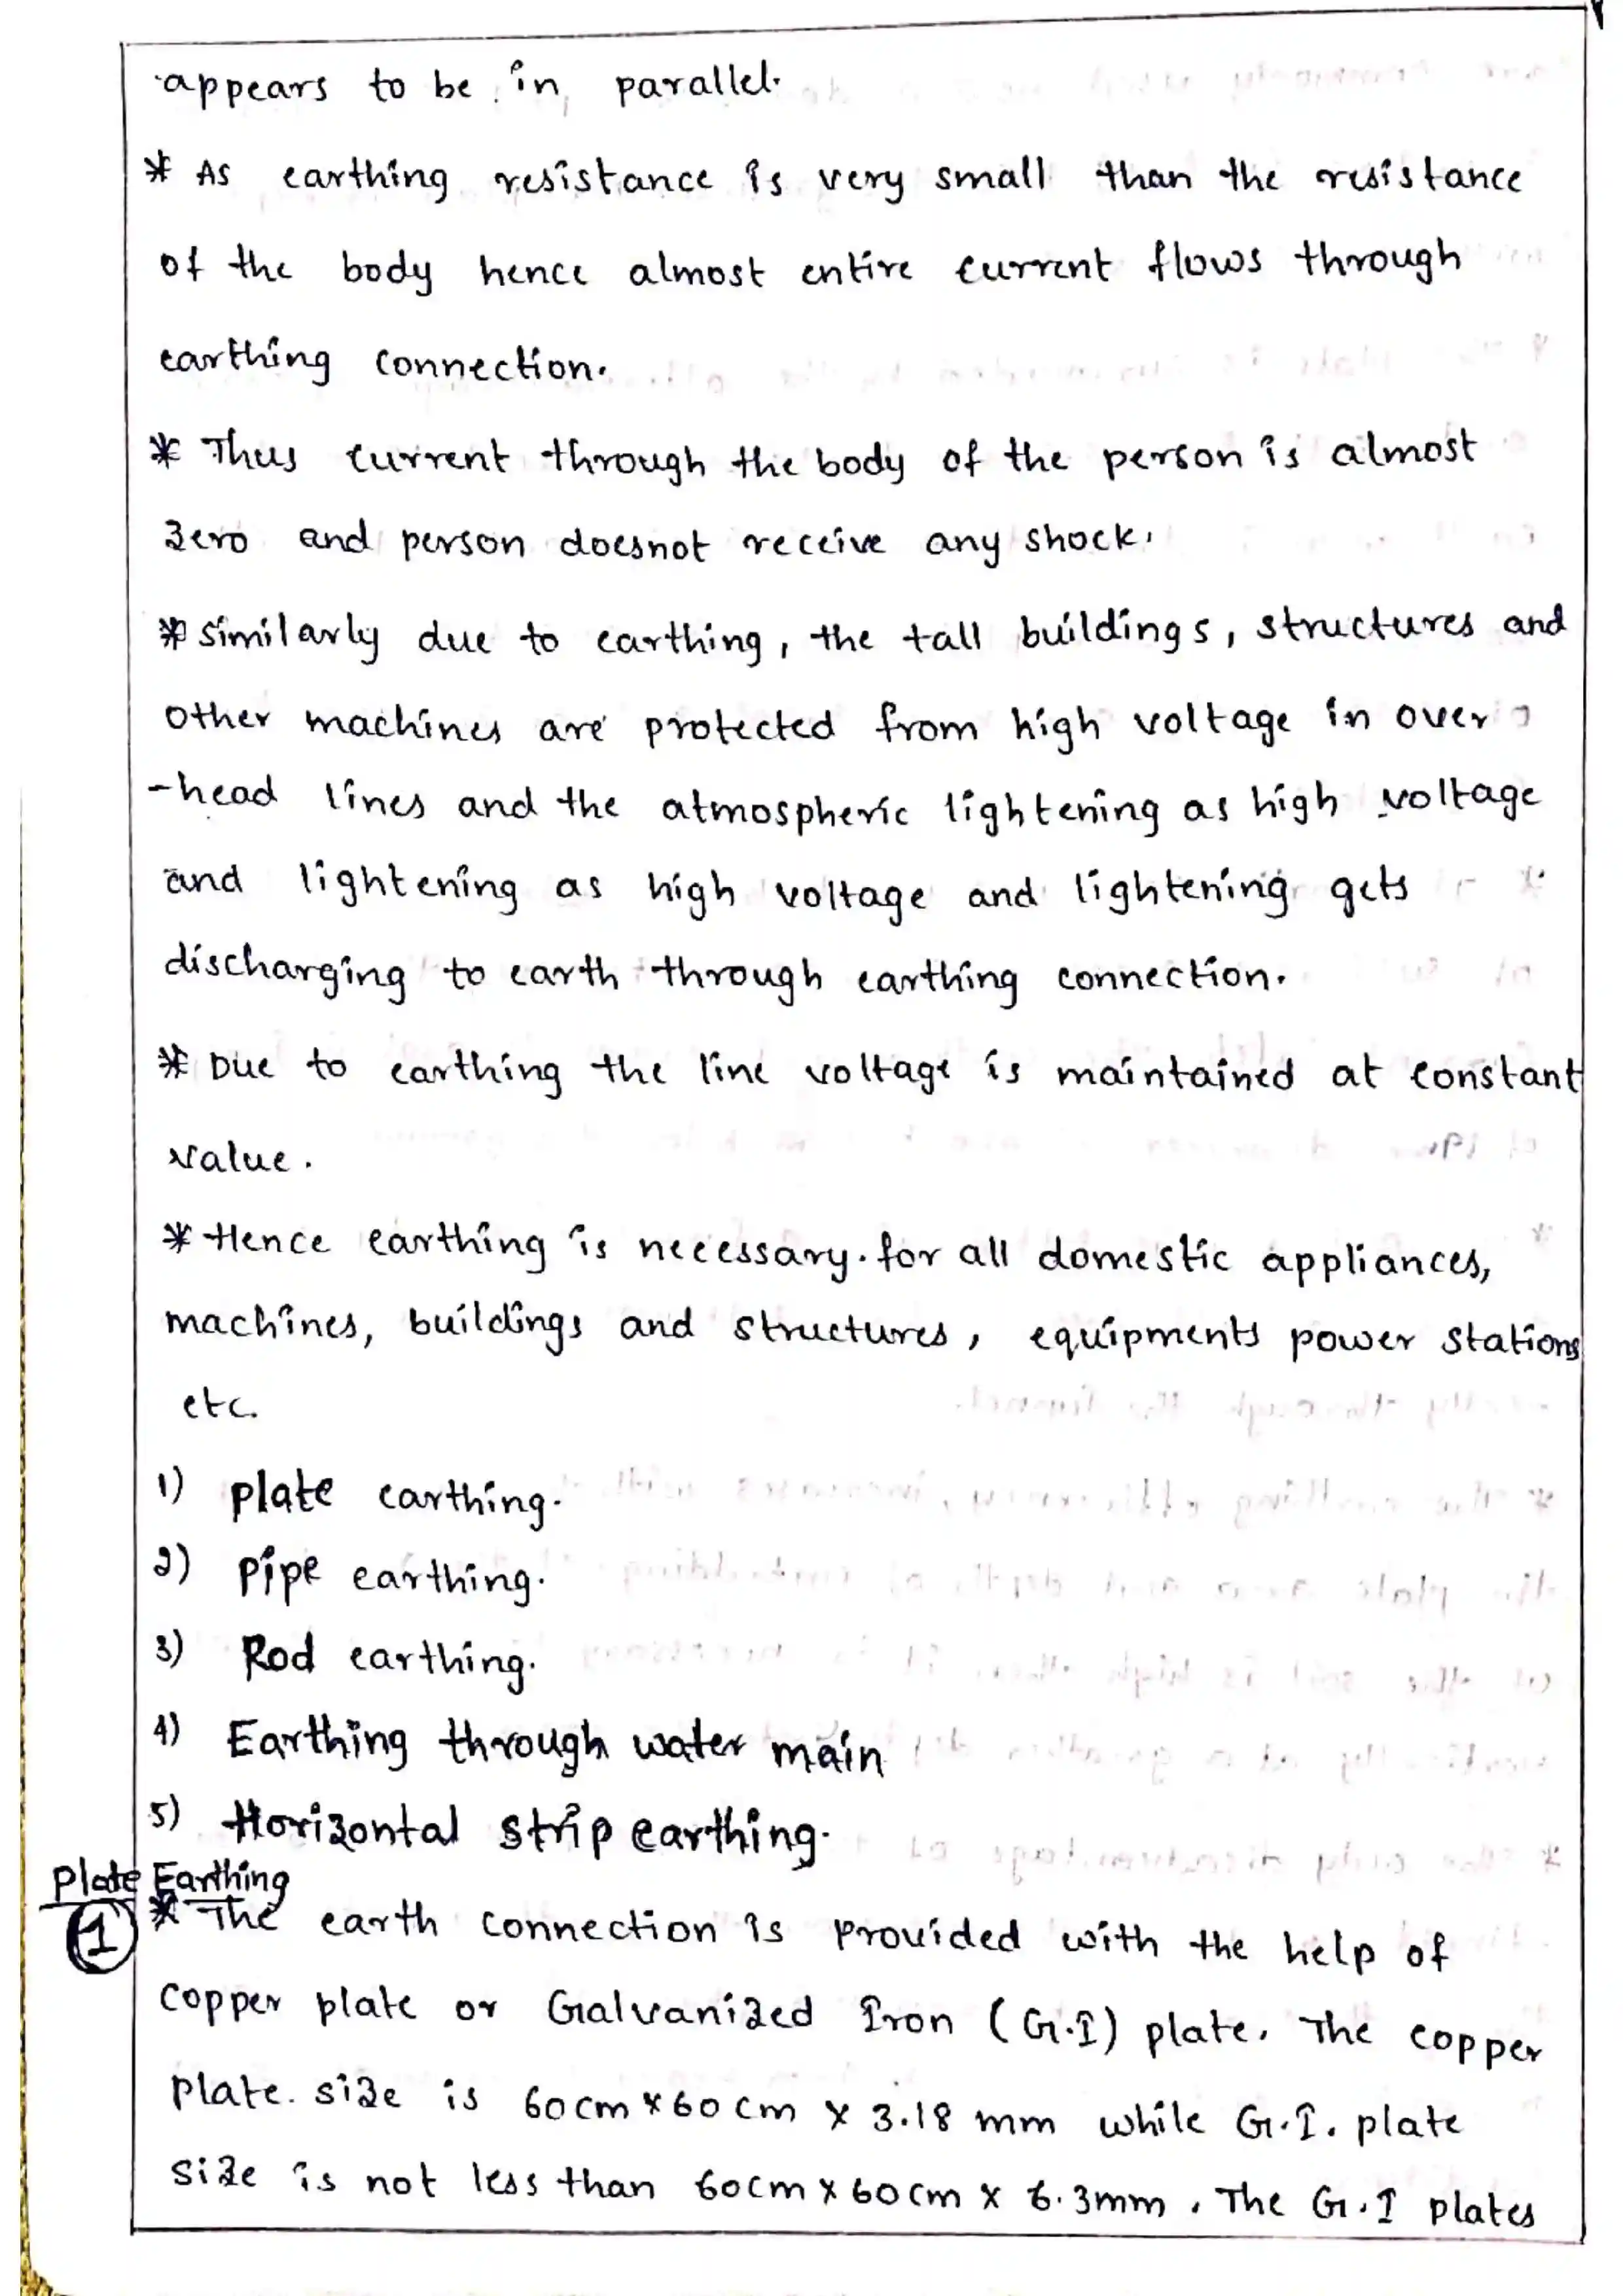 appears to be in parallel.
* As earthing resistance is very small than the resistance
of the body hence almost entire current flows through
earthing connection.
* Thus current through the body of the person is almost
zero and person doesnot receive any shock.
* similarly due to earthing, the tall buildings, structures and
other machines are protected from high voltage in over
-head lines and the atmospheric lightening as high voltage
and lightening as high voltage and lightening gets
discharging to earth through earthing connection.
* Due to earthing the line voltage is maintained at constant
value.
* Hence earthing is necessary. for all domestic appliances,
machines, buildings and structures, equipments power stations
etc.
1) plate earthing.
2) pipe earthing.
3) Rod earthing.
4) Earthing through water main
5) Horizontal strip earthing.
Plate Earthing
1 * The earth connection is provided with the help of
copper plate or Galvanized Iron (G.I) plate. The copper
plate. size is 60cm x 60 cm x 3.18 mm while G.I. plate
size is not less than 60cm x 60cm x 6.3mm. The G.I plates